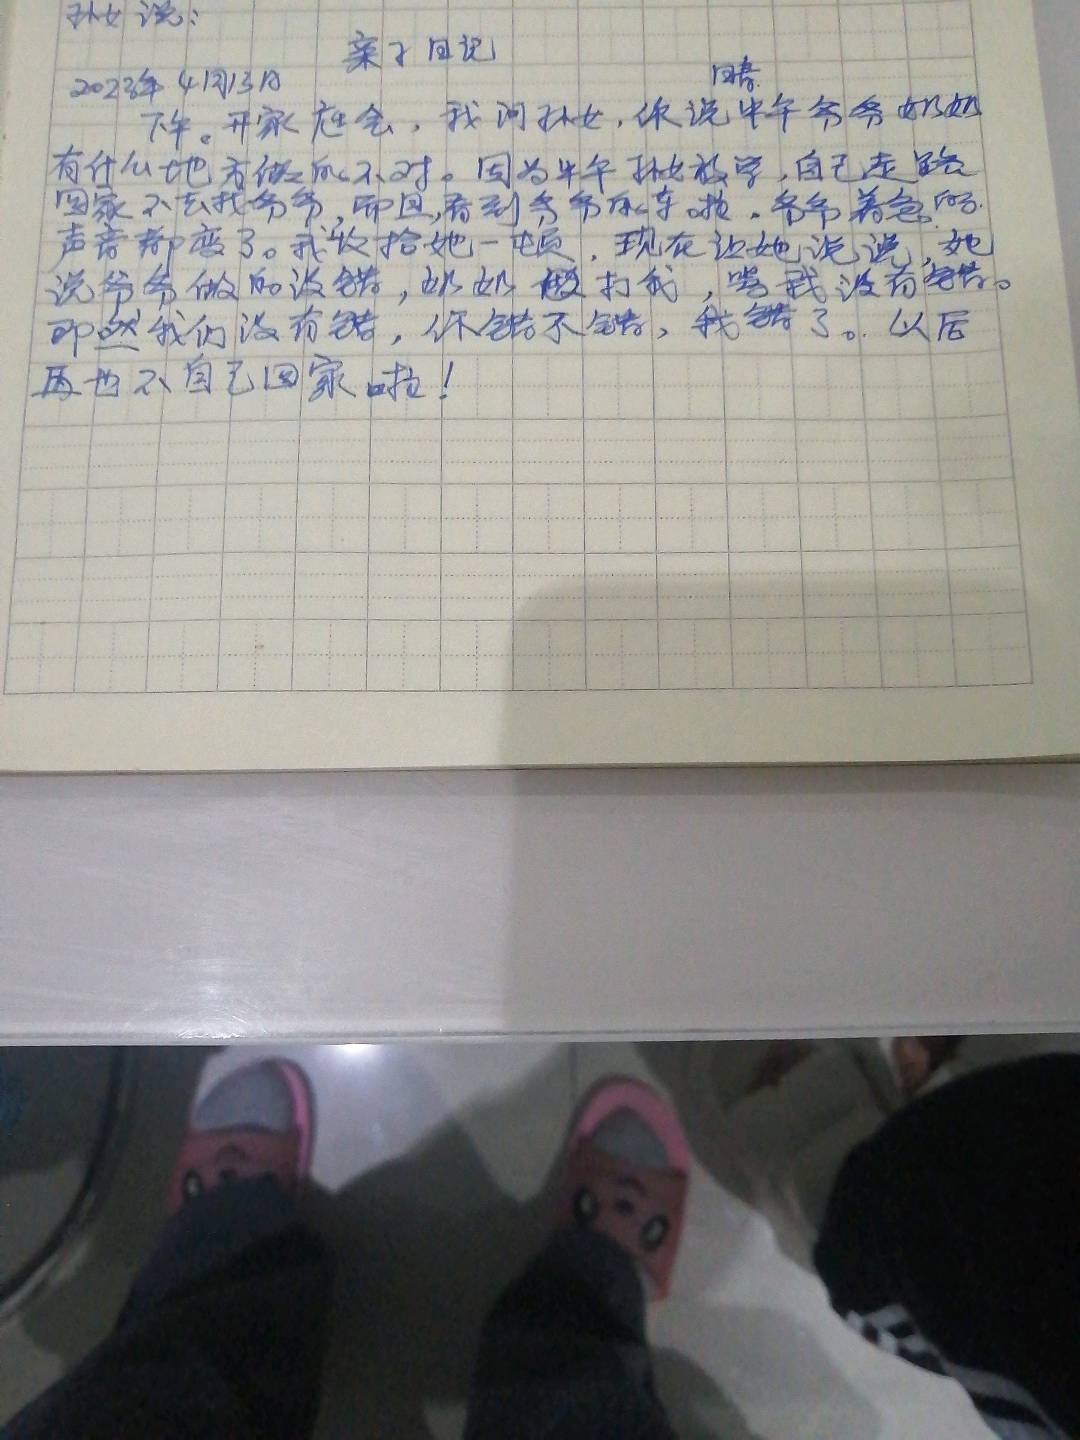 孙女说:
亲子日记
2023年4月13日 晴
下午。开家庭会,我问孙女,你说中午爷爷奶奶
有什么地方做的不对。因为中午孙女放学,自己走路
回家不去找爷爷,而且,看到爷爷的车啦,爷爷着急的
声音都变了。我收拾她一顿,现在让她说说,她
说爷爷做的没错,奶奶 打我,骂我没有错。
即然我们没有错,你错不错,我错了。以后
再也不自己回家啦!